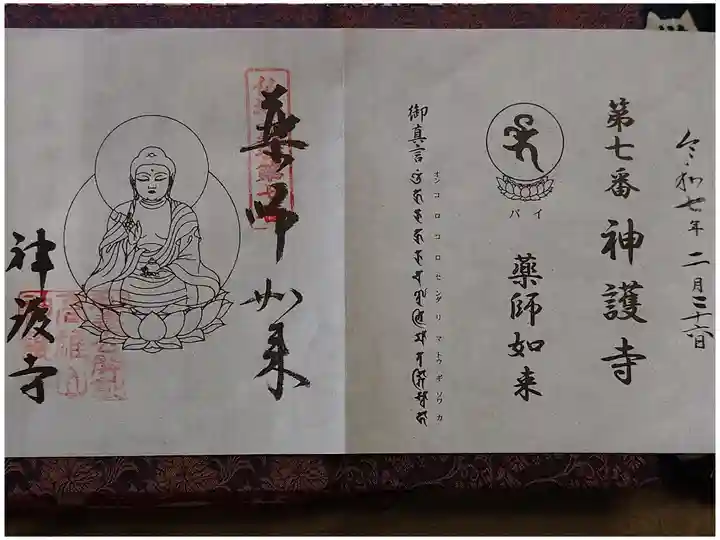 令和七年 二月二十六日
第七番 神護寺
バイ
薬師如来
オンコロコロセンダリマトウギソワカ
御真言
薬師如来
神護寺